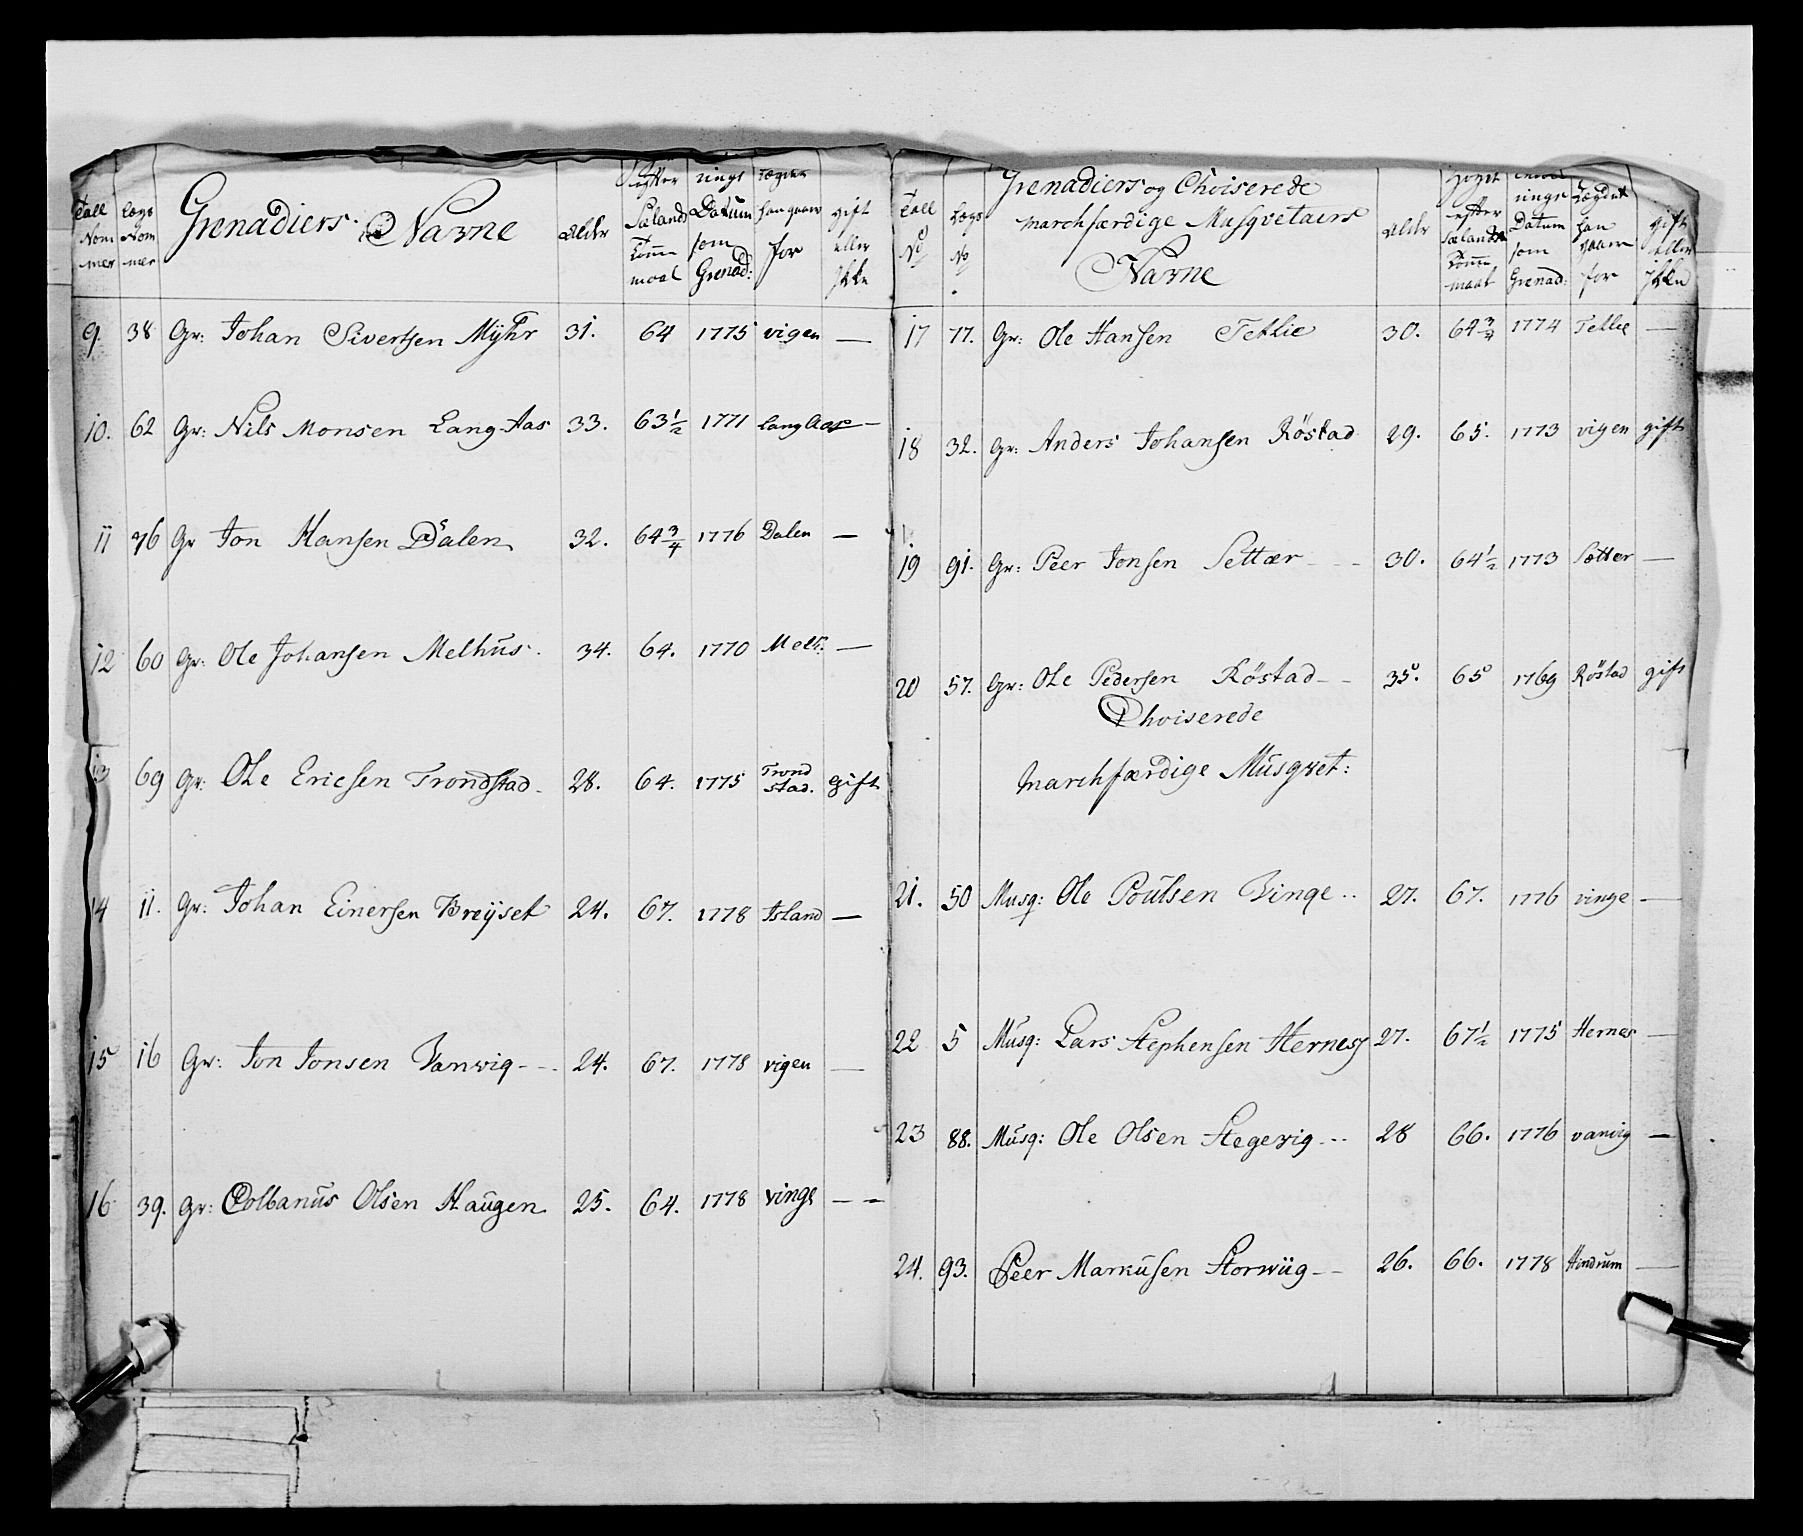 Tall Nommer | Legs Nommer | Grenadiers Navne | Alder | efter Sælands Tommemaal | rings Datum som Grenad: | Lægden han gaaer for | gift eller Ikke
9. 38 Gr: Johan Sivertsen Mÿhr 31. 64 1775 vigen —
10. 62 Gr: Nils Monsen Lang-Aas 33. 63½ 1771 LangAas —
11 76 Gr Jon Hansen Dalen 32. 64¾ 1776 Dalen —
12 60 Gr: Ole Johansen Melhus 34. 64. 1770 Melh. —
13 69 Gr: Ole Ericsen Trondstad 28. 64. 1775 Trond stad. gift
14 11. Gr: Johan Einersen Breÿset 24. 67. 1778 Island —
15 16 Gr: Jon Jonsen Vanvig - - 24. 67. 1778 vigen —
16 39. Gr: Colbanus Olsen Haugen 25. 64. 1778 vinge — —
Tall No | Legs No | Grenadiers og Choiserede marchfærdige Musqvetairs Navne | Alder | Høyst efter Sælands Tomme maal | nings Datum som Grenad: | Lægdet han gaaer for | gift eller Ikke
17 77. Gr: Ole Hansen Teklie 30. 64¾ 1774 Teklie —
18 32. Gr: Anders Johansen Röstad 29. 65. 1773 vigen gift
19 91. Gr: Peer Jonsen Settær - - - 30. 64½ 1773 Sætter —
20 57. Gr: Ole Pedersen Röstad - - 35. 65 1769 Röstad gift
Choiserede
Marchfærdige Musqvet:
21. 50 Musq: Ole Poulsen Vinge - - 27. 67. 1776 vinge —
22 5 Musq: Lars Stephensen Hernes 27. 67½ 1775 Hernes —
23 88. Musq: Ole Olsen Stegevig - - - 28 66. 1776 vanvig —
24. 93. Peer Markusen Storwiig - - 26. 66. 1778 Hindrum —